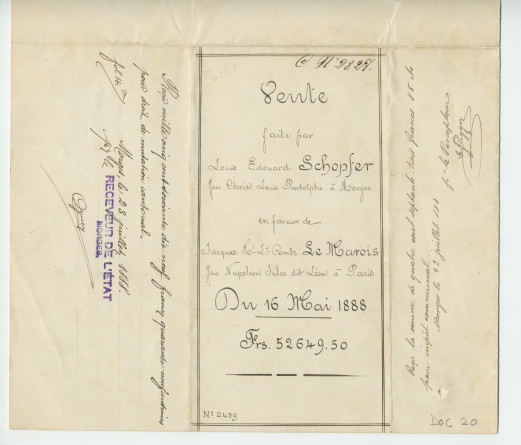 C Nº 2827.
Vente
faite par
Louis Edouard Schopfer
feu Christ Louis Rodolphe à Morges
en faveur de
Jacques Hri Ls Comte Le Marois
feu Napoléon Jules dit Léon à Paris
Du 16 Mai 1888
Frs. 52649.50
Nº 2459
Reçu mille cinq cent soixante dix neuf francs quarante neuf centimes
pour droit de mutation cantonal.
Morges, le 23 juillet 1888.
RECEVEUR DE L'ÉTAT
MORGES
Reçu la somme de quatre cent septante trois francs 85 cts
pour impôt communal
Morges le 24 juillet 1888
DOC 20